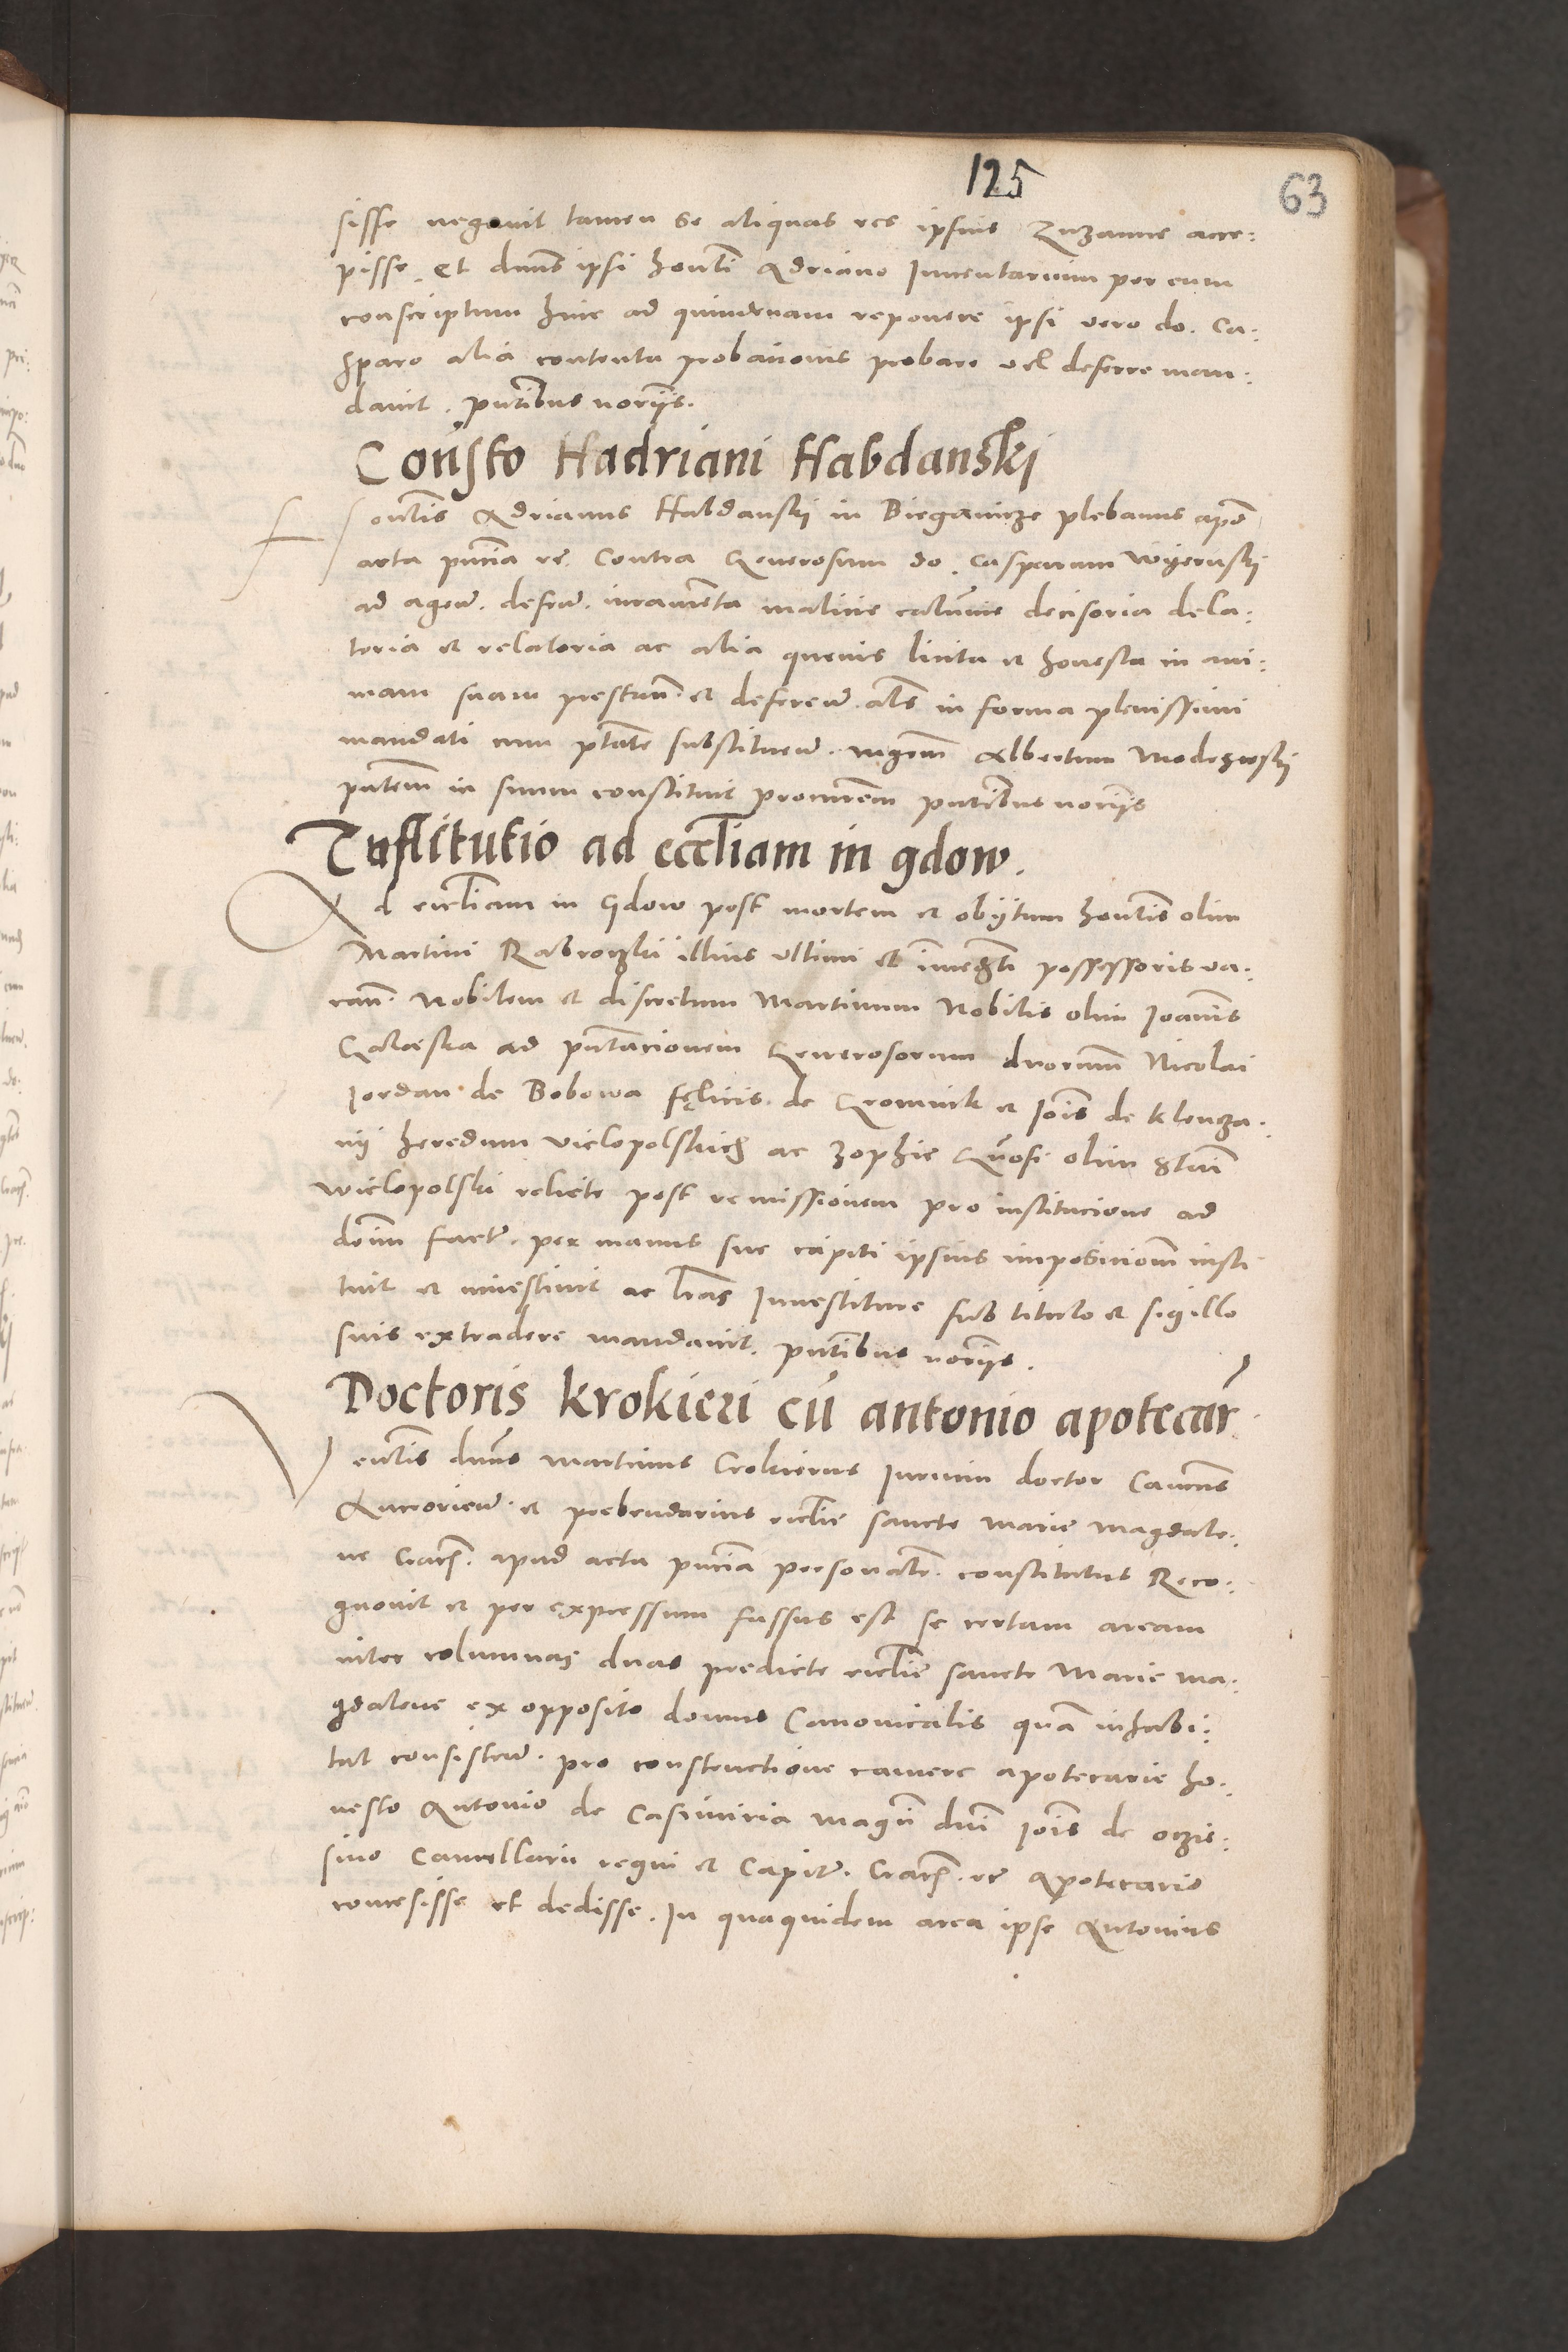 125
63
sisse negavit tamen se aliquas res ipsius Zuzanne acce:
pisse. Et dnns ipsi honti Adriano Inventarium per eum
conscriptum hinc ad quindenam reponere ipsi vero do. Ca:
sparo alia contenta probationis probare vel deferre man:
davit. pntibus noriis.
Consto Hadriani Habdanski
Hontis Adrianus Habdanski in Bieganicze plebanus apd
acta pncia re. Contra Generosum do. Casparum
ad agen. defen. iuramenta malicie calumnie decisoria dela:
toria et relatoria ac alia quevis licita et honesta in ani:
mam suam prestan. et deferen. als in forma plenissimi
mandati cum ptate substituen. mgrm Albertum
pntem in suum constituit procurem pntibus noriis
Institutio ad eccliam in gdow.
Ad eccliam in Gdow post mortem et obijtum hontis olim
Martini illius ultimi et immedti possessoris va:
can. Nobilem et discretum Martinum Nobilis olim Joannis
ad pntacionem Generosorum dnorum Nicolai
Jordan de Bobowa felicis de et Jois de Klencza:
nij heredum vielopolskich ac Zophie Gnosi olim
wielopolski relicte post remissionem pro institucione ad
dnum factu. per manus sue capiti ipsius imposicionem insti
tuit et investivit ac lras Investiture sub titulo et sigillo
suis extradere mandavit. pntibus noriis.
Doctoris krokieri cu antonio apotecar
Ventis dnns Martinus Crokierus Jurium doctor Canncus
et prebendarius ecclie sancte Marie Magdale:
ne Crac. apud acta pncia personalr. constitutus Reco:
gnovit et per expressum fassus est se certam aream
inter columnas duas predicte ecclie sancte Marie ma:
gdalene ex opposito domus Canonicalis quam inhabi:
tat consisten. pro constructione camere apotecarie ho:
nesto Antonio de Casimiria magci dni Jois de oczie:
sino Cancellarii regni et Capitu. Crac. re Apotecario
concesisse et dedisse. In quaquidem area ipse Antonius